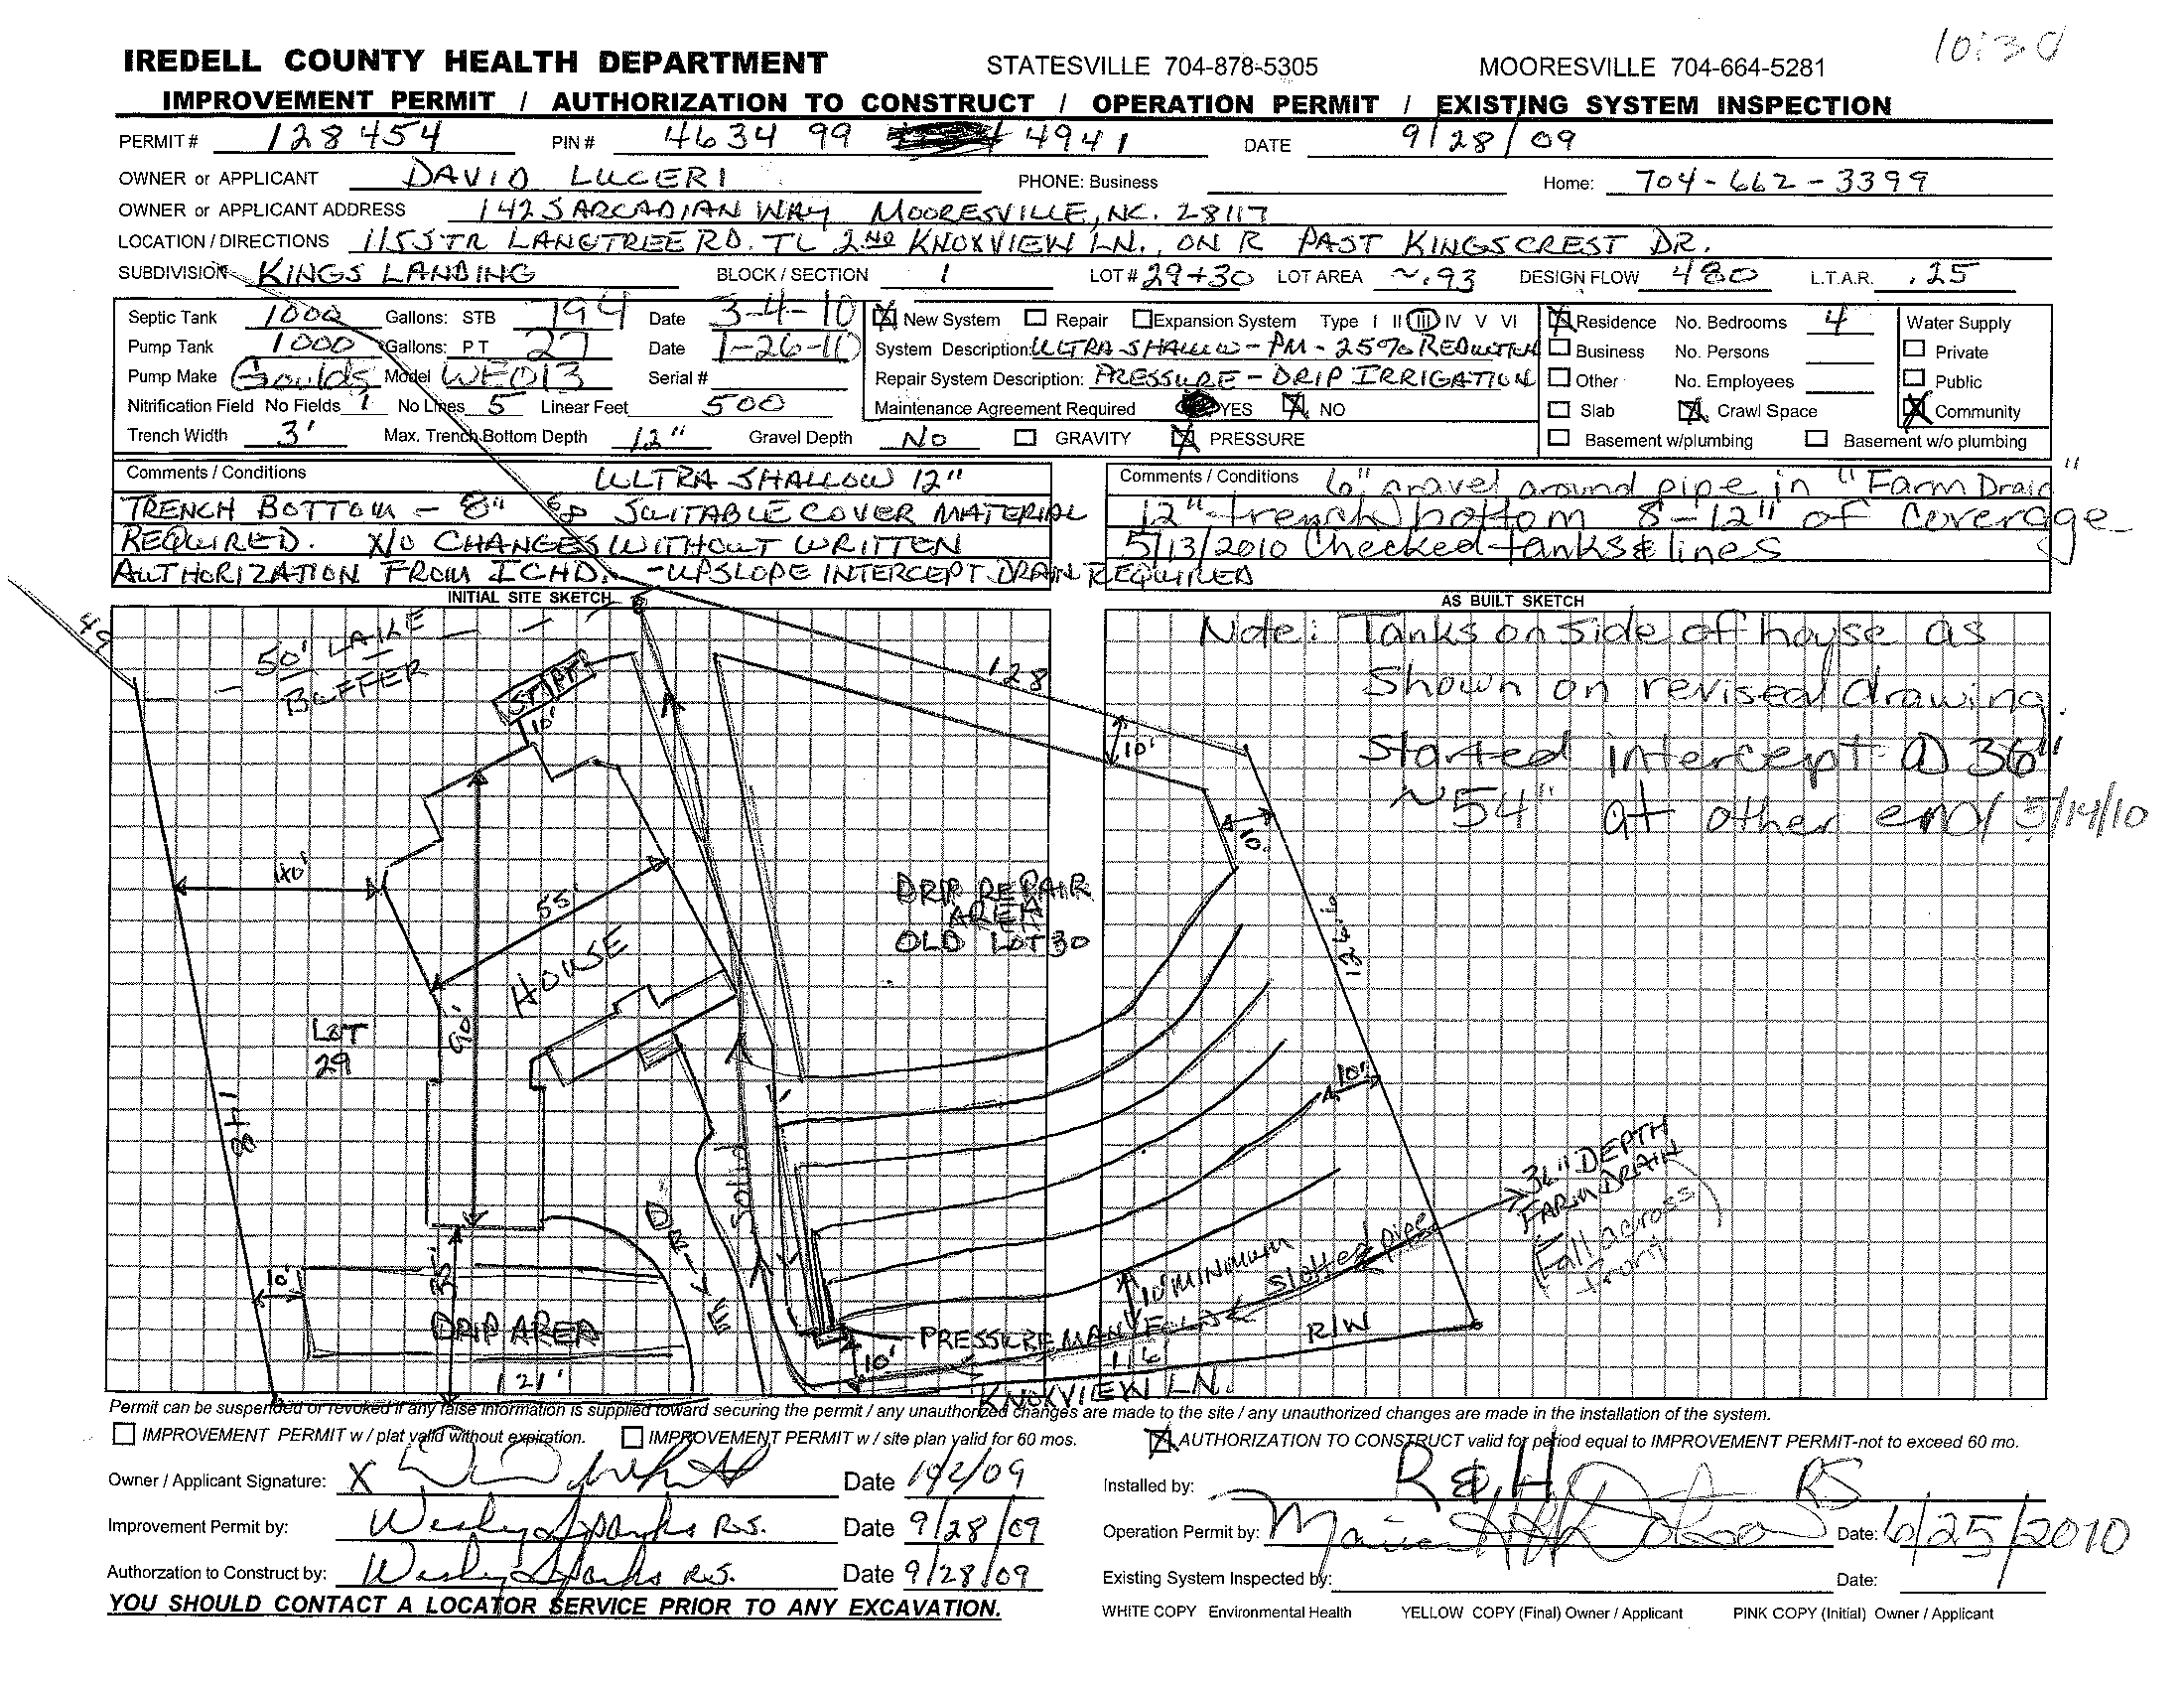 10:30
IREDELL COUNTY HEALTH DEPARTMENT STATESVILLE 704-878-5305 MOORESVILLE 704-664-5281
IMPROVEMENT PERMIT / AUTHORIZATION TO CONSTRUCT / OPERATION PERMIT / EXISTING SYSTEM INSPECTION
PERMIT # 128454 PIN # 4634 99 4941 DATE 9/28/09
OWNER or APPLICANT DAVID LUCERI PHONE: Business Home: 704-662-3399
OWNER or APPLICANT ADDRESS 142 S ARCADIAN WAY MOORESVILLE, NC. 28117
LOCATION / DIRECTIONS 115 S TR LANGTREE RD. TL 2ND KNOXVIEW LN., ON R PAST KINGSCREST DR.
SUBDIVISION KINGS LANDING BLOCK / SECTION 1 LOT # 29+30 LOT AREA ~.93 DESIGN FLOW 480 L.T.A.R. .25
Septic Tank 1000 Gallons: STB 794 Date 3-4-10 New System Repair Expansion System Type I II III IV V VI Residence No. Bedrooms 4 Water Supply
Pump Tank 1000 Gallons: PT 27 Date 1-26-10 System Description: ULTRA-SHALLOW-PM-25% REDUCTION Business No. Persons Private
Pump Make Goulds Model WE013 Serial # Repair System Description: PRESSURE-DRIP IRRIGATION Other No. Employees Public
Nitrification Field No Fields 1 No Lines 5 Linear Feet 500 Maintenance Agreement Required YES NO Slab Crawl Space Community
Trench Width 3' Max. Trench Bottom Depth 12" Gravel Depth No GRAVITY PRESSURE Basement w/plumbing Basement w/o plumbing
Comments / Conditions ULTRA SHALLOW 12"
TRENCH BOTTOM - 8" SUITABLE COVER MATERIAL
REQUIRED. NO CHANGES WITHOUT WRITTEN
AUTHORIZATION FROM ICHD. -UPSLOPE INTERCEPT DRAIN REQUIRED
Comments / Conditions 6" gravel around pipe in "Farm Drain"
12" trench bottom 8-12" of coverage
5/13/2010 Checked tanks & lines
INITIAL SITE SKETCH
AS BUILT SKETCH
Note: Tanks on side of house as
Shown on revised drawing.
Started intercept @ 36"
~54" at other end 5/14/10
49
50' LAKE
BUFFER
ST PT
10'
128
10'
10'
40'
55'
HOUSE
90'
DRIP REPAIR
AREA
OLD LOT 30
126.6
LOT
29
148
10'
Solid
DRIVE
36" DEPTH
FARM DRAIN
(Fall across
front)
10' MINIMUM
slotted pipe
10'
35'
DRIP AREA
PRESSURE MANIFOLD
R/W
10'
116
121'
KNOXVIEW LN.
Permit can be suspended or revoked if any false information is supplied toward securing the permit / any unauthorized changes are made to the site / any unauthorized changes are made in the installation of the system.
IMPROVEMENT PERMIT w / plat valid without expiration. IMPROVEMENT PERMIT w / site plan valid for 60 mos. AUTHORIZATION TO CONSTRUCT valid for period equal to IMPROVEMENT PERMIT-not to exceed 60 mo.
Owner / Applicant Signature: X Date 10/2/09 Installed by: R & H RS
Improvement Permit by: Wesley Sparks R.S. Date 9/28/09 Operation Permit by: Date: 6/25/2010
Authorzation to Construct by: Wesley Sparks R.S. Date 9/28/09 Existing System Inspected by: Date:
YOU SHOULD CONTACT A LOCATOR SERVICE PRIOR TO ANY EXCAVATION. WHITE COPY Environmental Health YELLOW COPY (Final) Owner / Applicant PINK COPY (Initial) Owner / Applicant